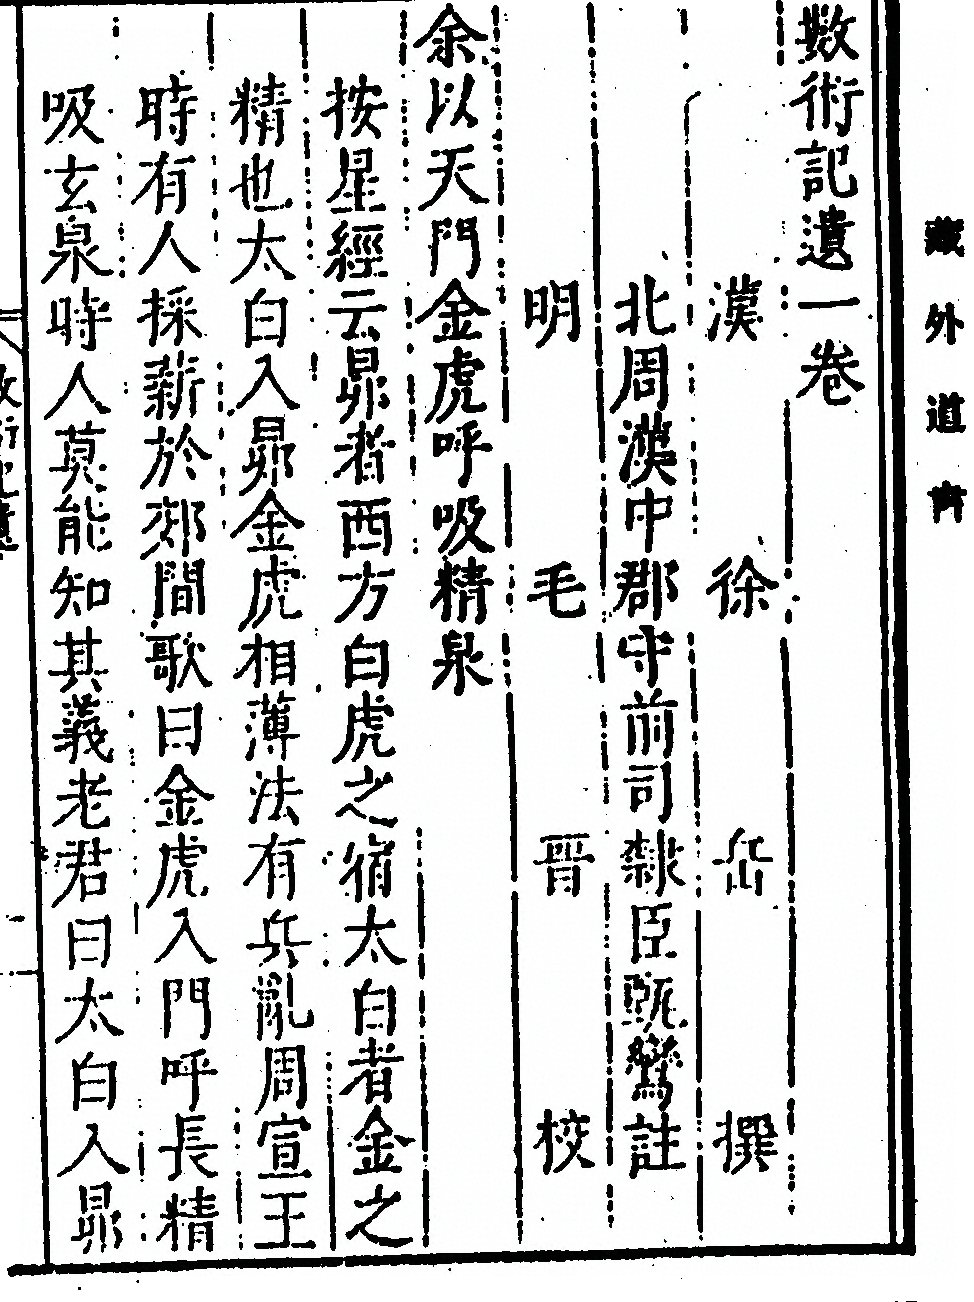 藏外道書
數術記遺一卷
漢徐岳撰
北周漢中郡守前司隸臣甄鸞註
明毛晉校
余以天門金虎呼吸精泉
按星經云昴者西方白虎之宿太白者金之
精也太白入昴金虎相薄法有兵亂周宣王
時有人採薪於郊間歌曰金虎入門呼長精
吸玄泉時人莫能知其義老君曰太白入昴